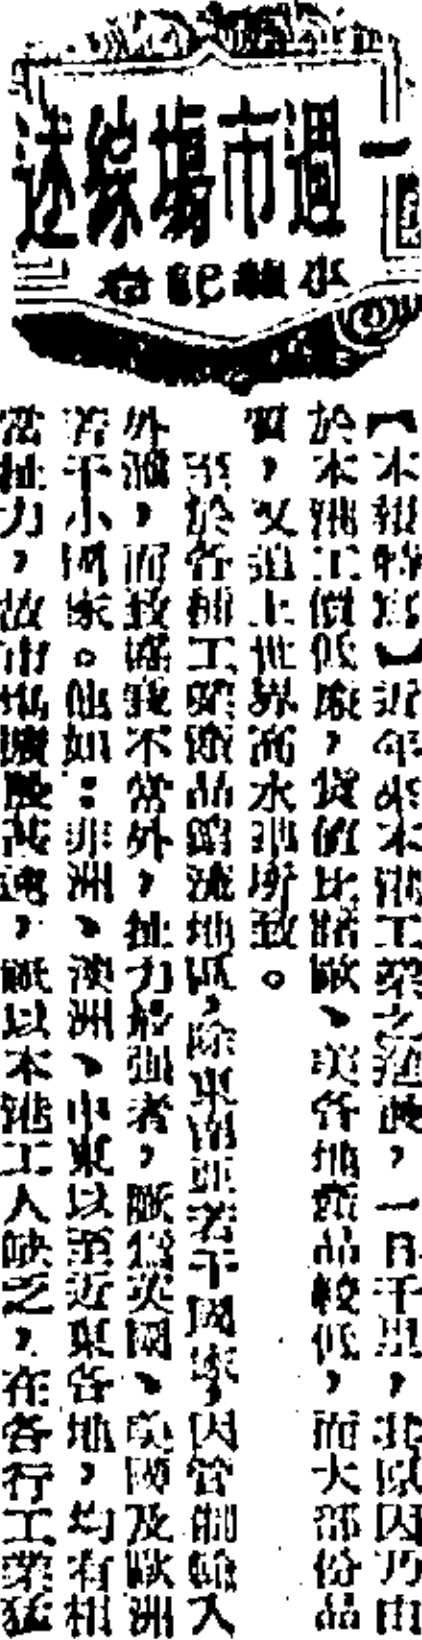 一週市場綜述
本報記者
【本報特寫】近年來本港工業之進展，一日千里，其原因乃由
於本港工價低廉，貨值比諸歐、美各地產品較低，而大部份品
質，又追上世界高水準所致。
至於各種工業產品銷流地區，除東南亞若干國家，因管制輸入
外滙，而致購買不當外，扯力最强者，厥為英國、美國及歐洲
若干小國家。他如：非洲、澳洲、中東以至近東各地，均有相
當扯力，故市場擴展甚速，祇以本港工人缺乏，在各行工業猛